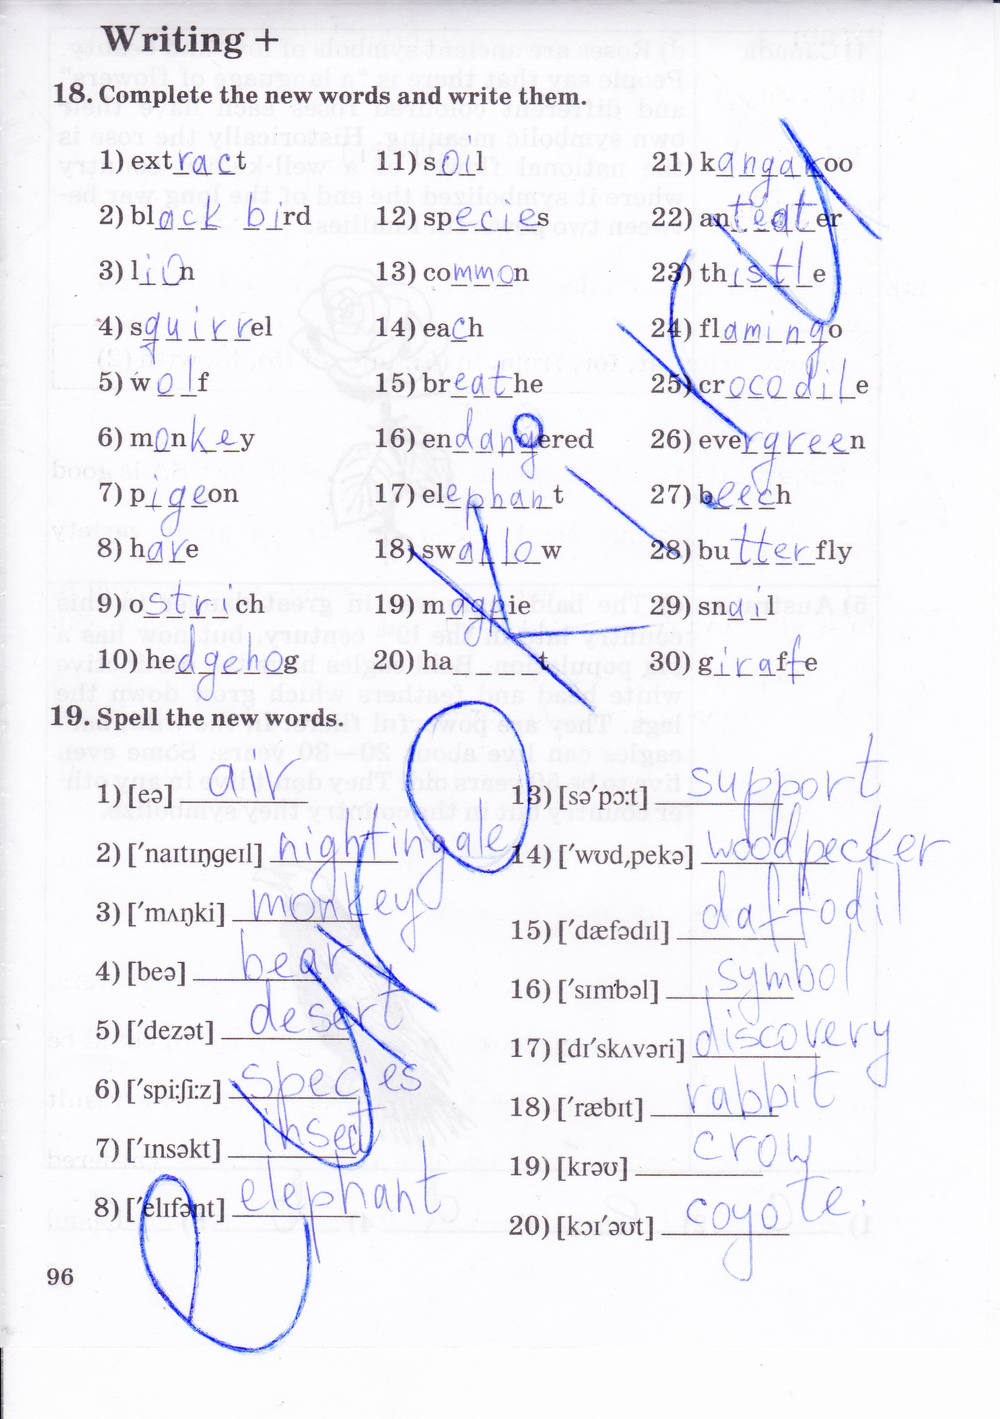 Writing +
18. Complete the new words and write them.
1) extract
2) black bird
3) lion
4) squirrel
5) wolf
6) monkey
7) pigeon
8) hare
9) ostrich
10) hedgehog
11) soil
12) species
13) common
14) each
15) breathe
16) endangered
17) elephant
18) swallow
19) magpie
20) ha____t
21) kangaroo
22) anteater
23) thistle
24) flamingo
25) crocodile
26) evergreen
27) beech
28) butterfly
29) snail
30) giraffe
19. Spell the new words.
1) [eə] air
2) [ˈnaıtıŋgeıl] nightingale
3) [ˈmʌŋki] monkey
4) [beə] bear
5) [ˈdezət] desert
6) [ˈspi:ʃi:z] species
7) [ˈınsəkt] insect
8) [ˈelıfənt] elephant
13) [səˈpɔ:t] support
14) [ˈwʊd,pekə] woodpecker
15) [ˈdæfədıl] daffodil
16) [ˈsımbəl] symbol
17) [dıˈskʌvəri] discovery
18) [ˈræbıt] rabbit
19) [krəʊ] crow
20) [kɔıˈəʊt] coyote.
96